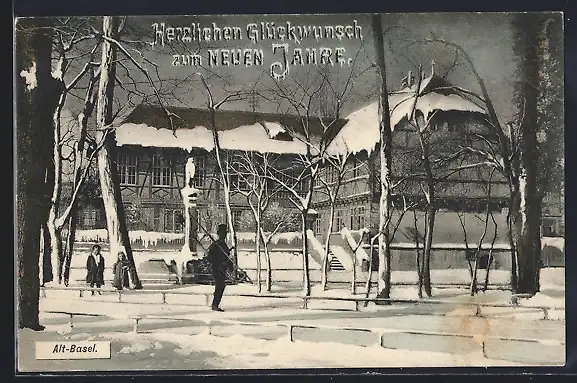 Herzlichen Glückwunsch
zum NEUEN JAHRE.
Alt-Basel.